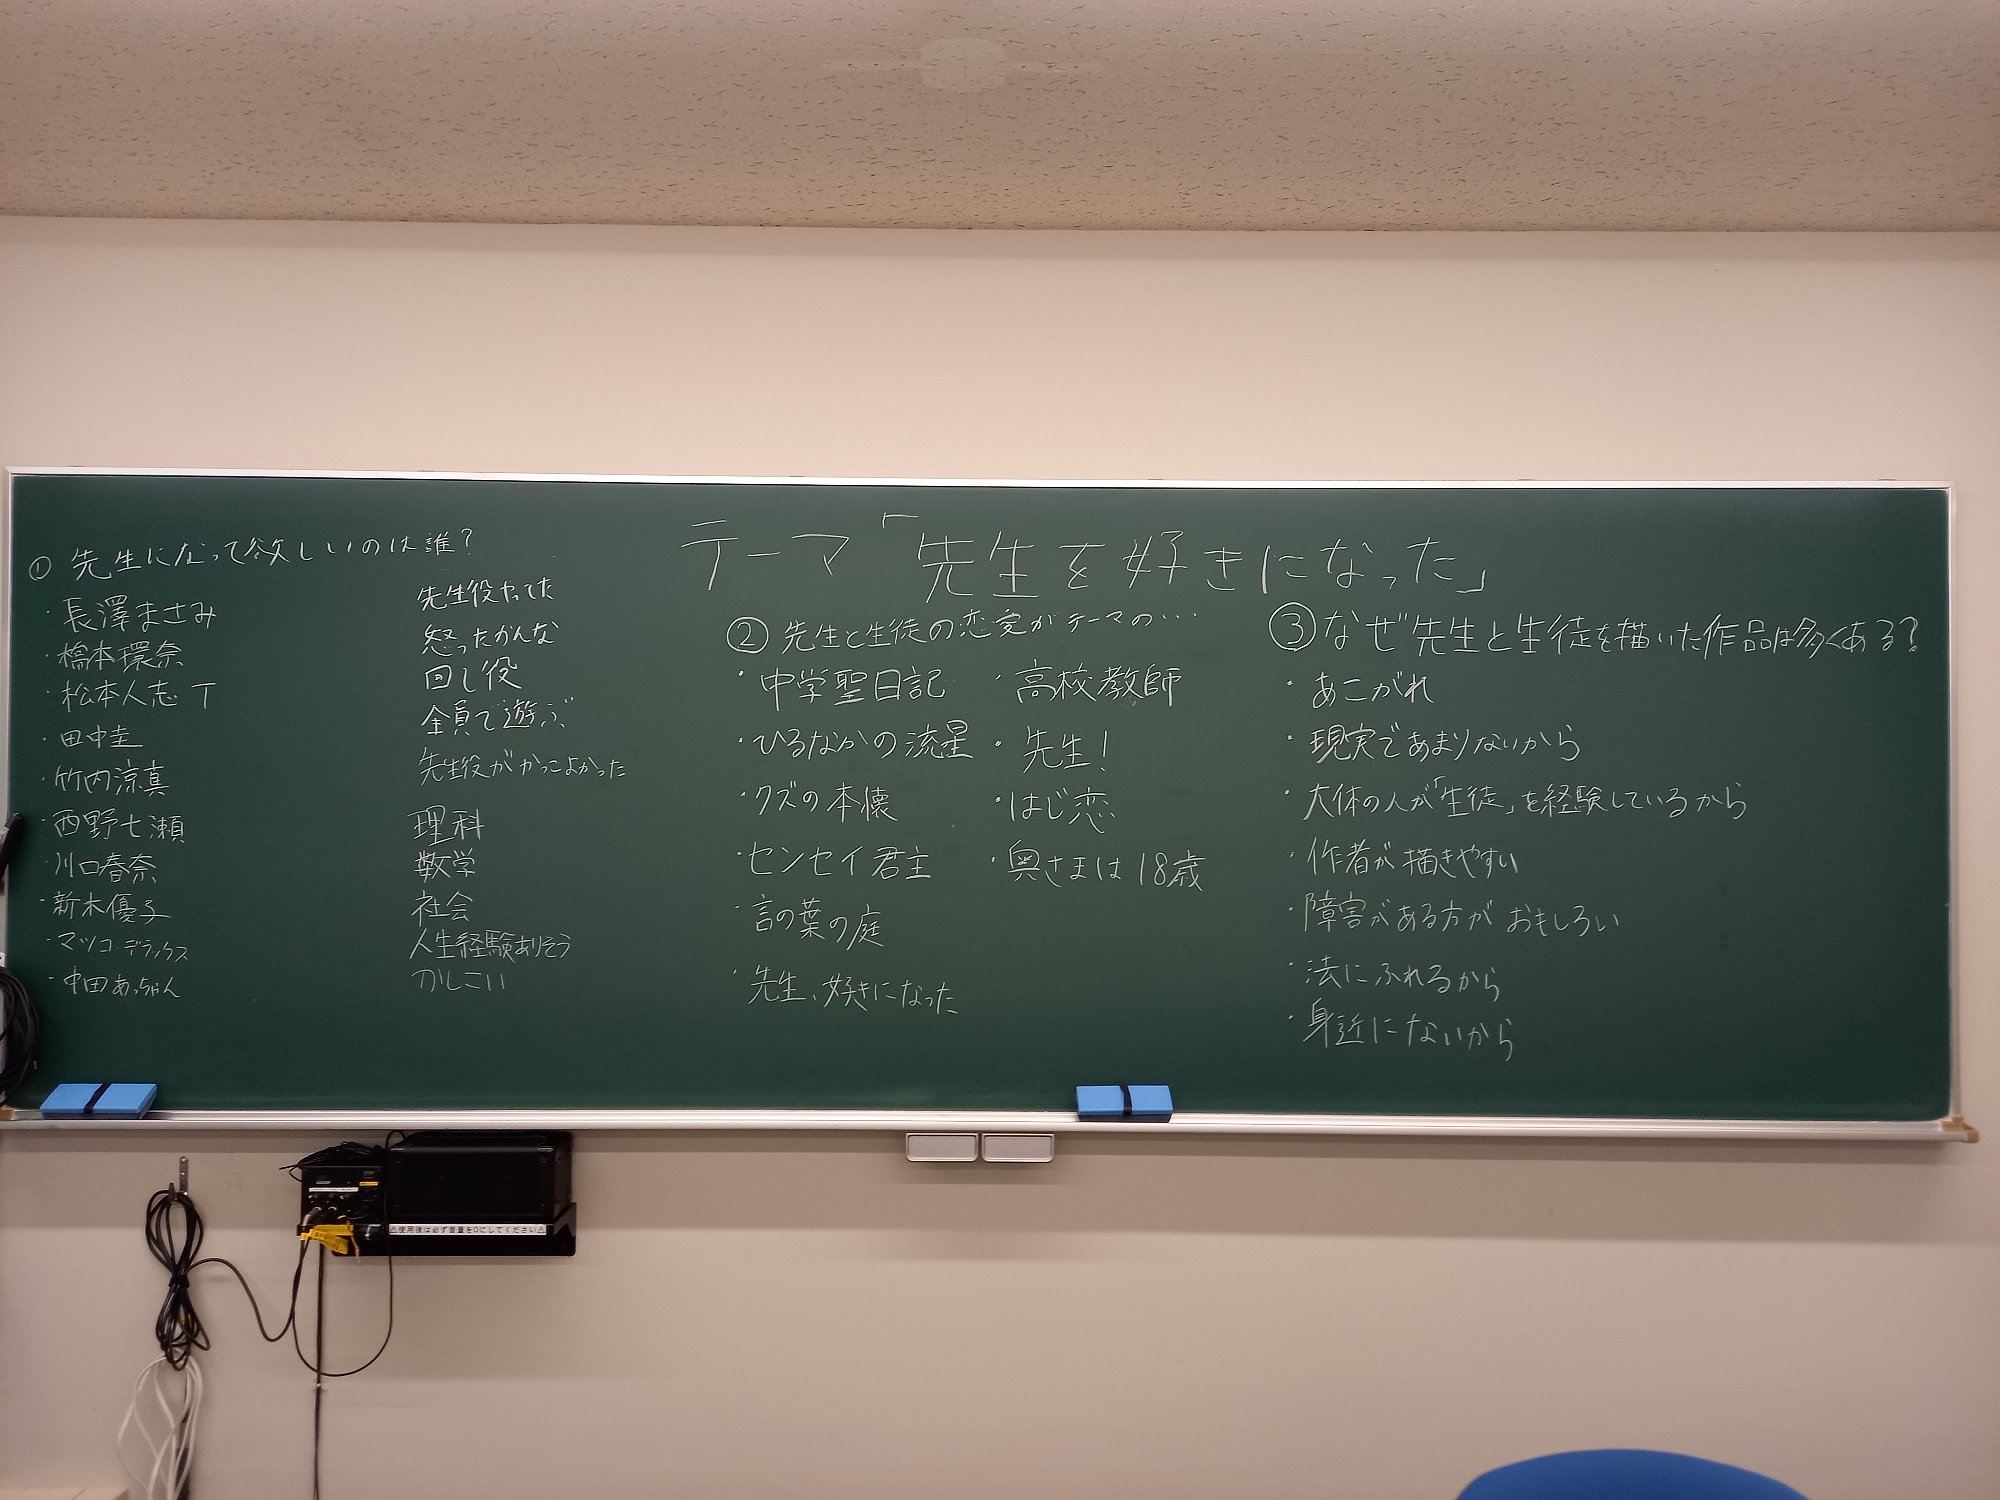 テーマ「先生を好きになった」
① 先生になって欲しいのは誰?
・長澤まさみ 先生役やってた
・橋本環奈 怒ったかんな
・松本人志 T 回し役
・田中圭 全員で遊ぶ
・竹内涼真 先生役がかっこよかった
・西野七瀬 理科
・川口春奈 数学
・新木優子 社会
・マツコ・デラックス 人生経験ありそう
・中田あっちゃん かしこい
② 先生と生徒の恋愛がテーマの…
・中学聖日記
・ひるなかの流星
・クズの本懐
・センセイ君主
・言の葉の庭
・先生、好きになった
・高校教師
・先生!
・はじ恋
・奥さまは18歳
③なぜ先生と生徒を描いた作品は多くある?
・あこがれ
・現実であまりないから
・大体の人が「生徒」を経験しているから
・作者が描きやすい
・障害がある方がおもしろい
・法にふれるから
・身近にないから
⚠使用後は必ず音量を0にしてください⚠